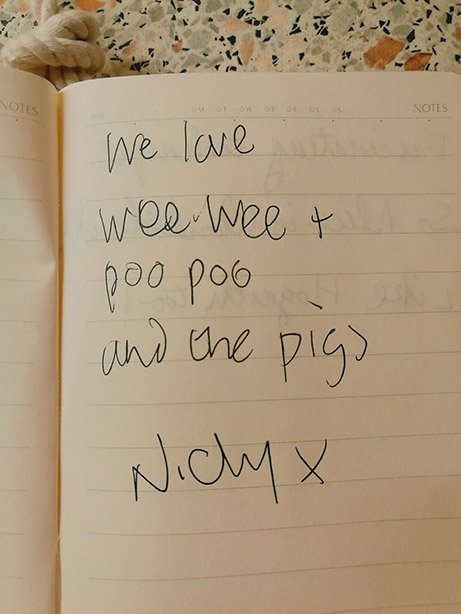 NOTES
NOTES
We love
wee-wee +
poo poo
and the pigs
Nicky x